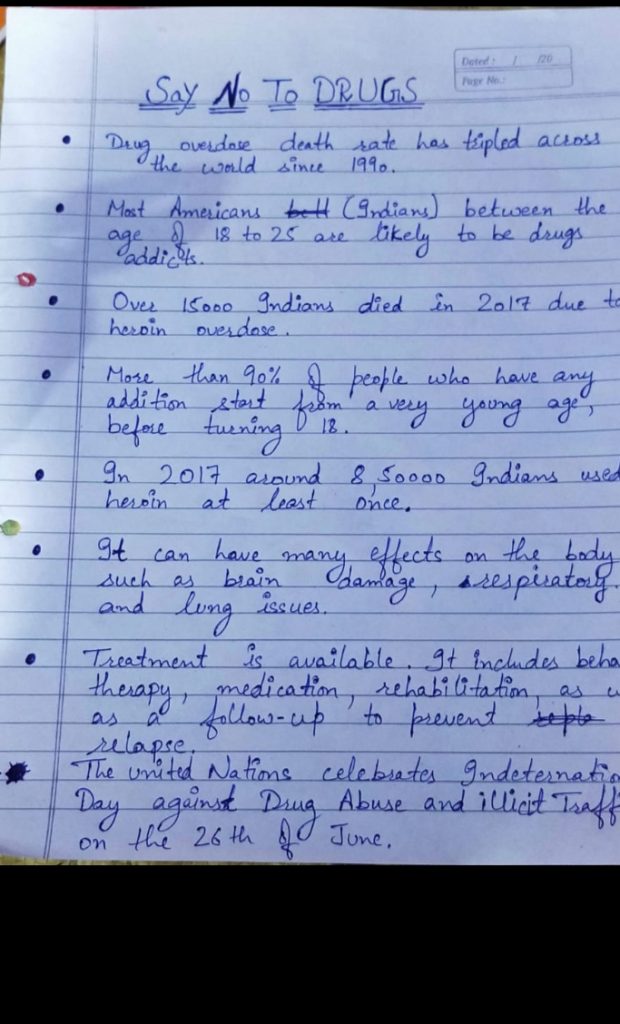 Dated : / /20
Page No.:
Say No To DRUGS
• Drug overdose death rate has tripled across
the world since 1990.
• Most Americans (Indians) between the
age of 18 to 25 are likely to be drugs
addicts.
• Over 15000 Indians died in 2017 due to
heroin overdose.
• More than 90% of people who have any
addition start from a very young age,
before turning 18.
• In 2017 around 8,50000 Indians used
heroin at least once.
• It can have many effects on the body
such as brain damage, respiratory
and lung issues.
• Treatment is available. It includes beha
therapy, medication, rehabilitation, as w
as a follow-up to prevent
relapse.
The united Nations celebrates Indeternatio
Day against Drug Abuse and illicit Traff
on the 26th of June.